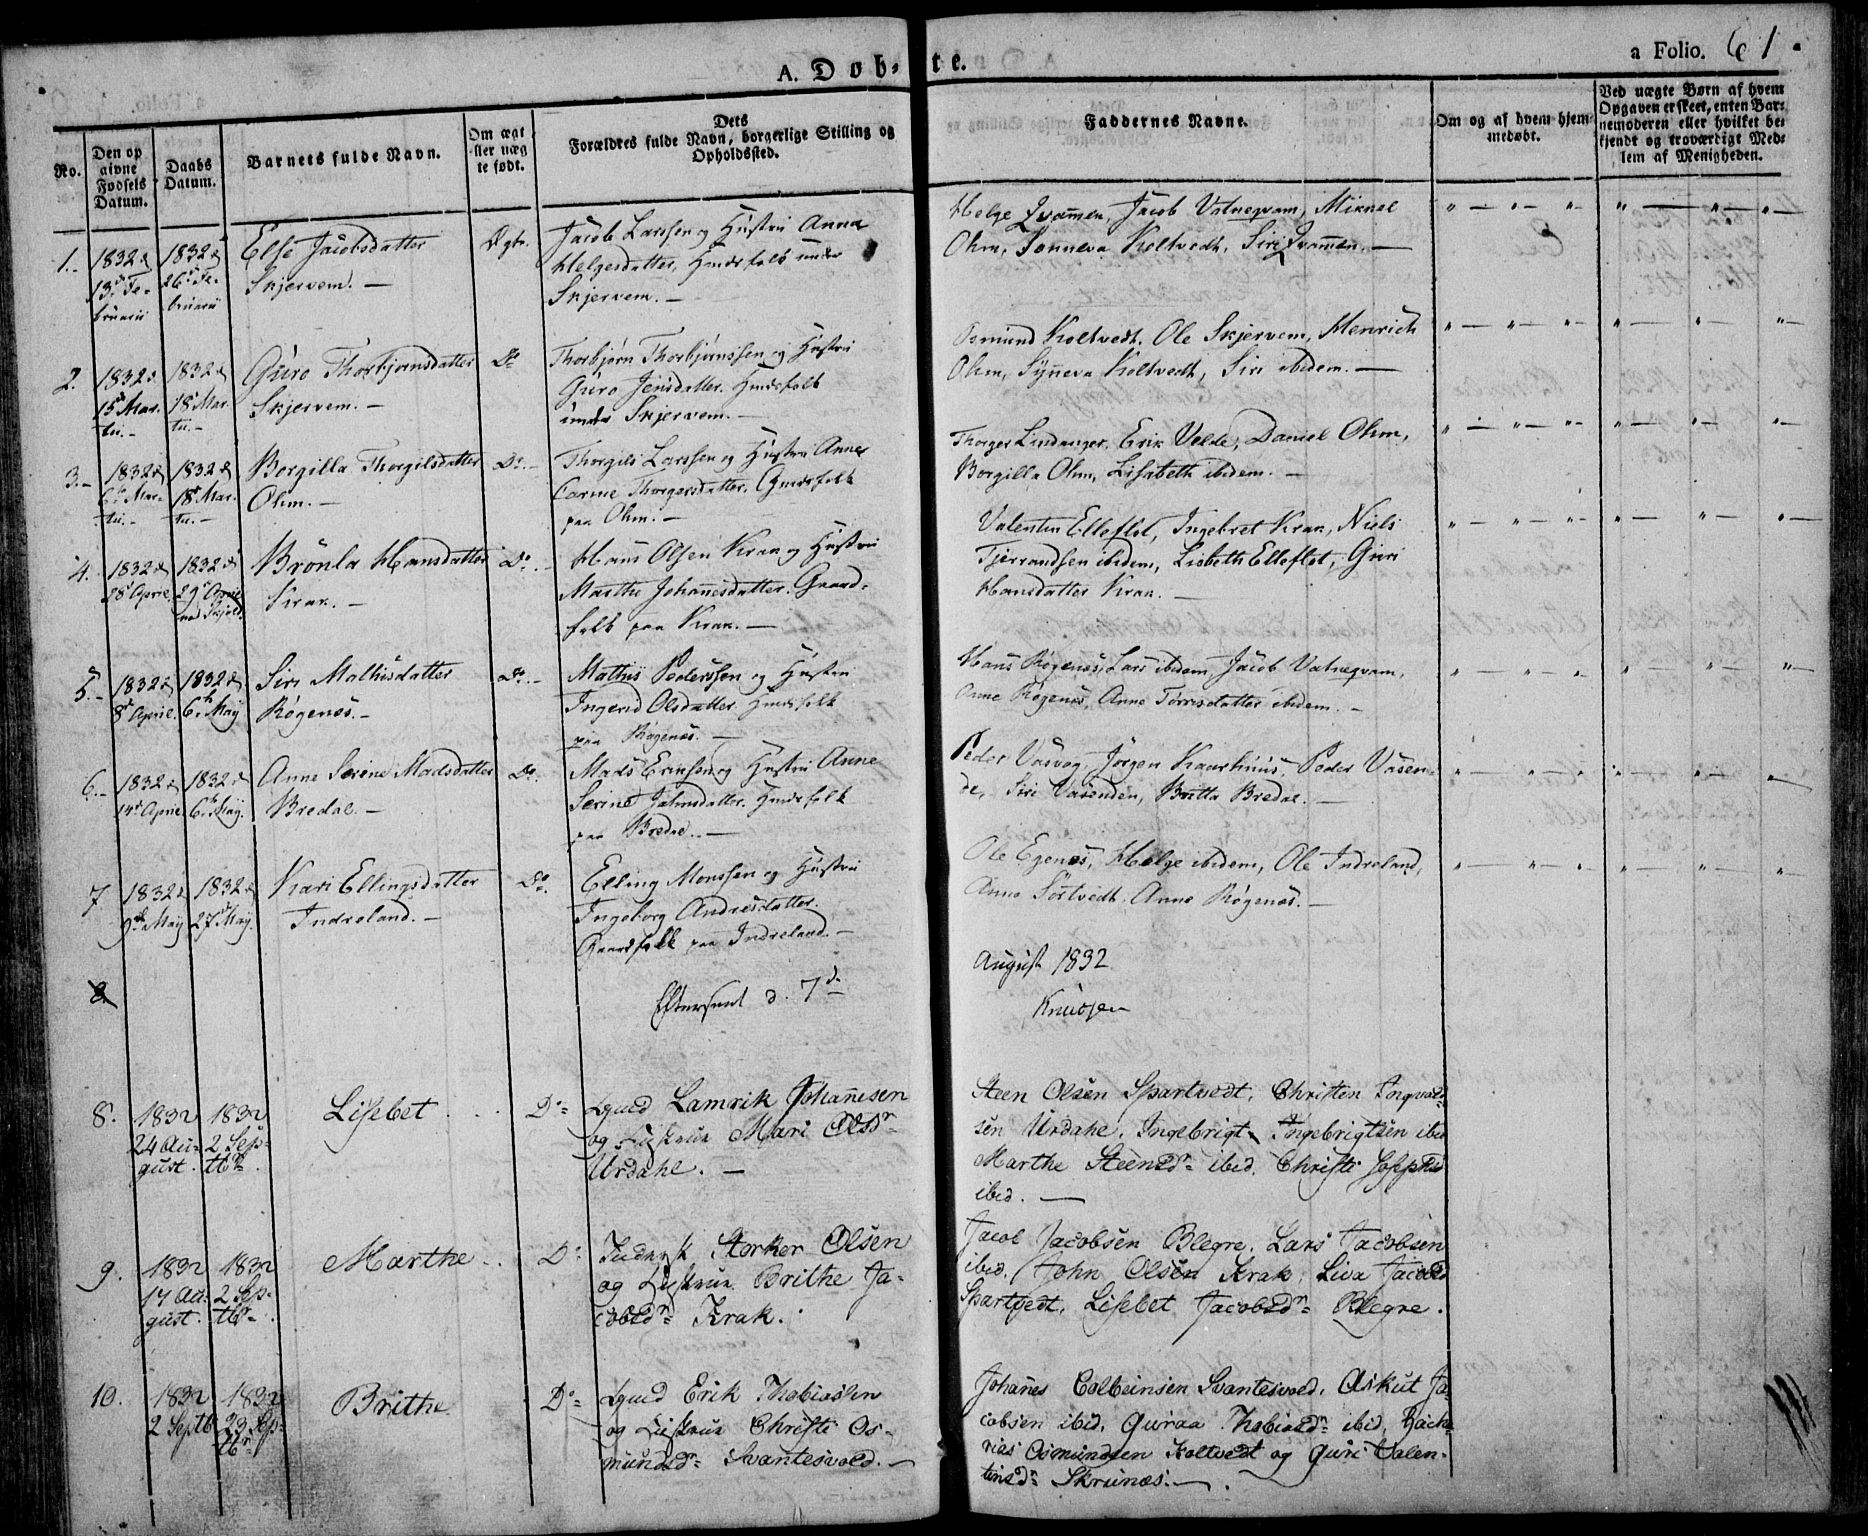 A. Døb-
te.
a Folio. 61.
No.
Den op
givne
Fødsels
Datum.
Daabs
Datum.
Barnets fulde Navn.
Om ægt
eller uæg
te født.
Dets
Forældres fulde Navn, borgerlige Stilling og
Opholdssted.
Faddernes Navne.
Om og af hvem hjem-
medøbt.
Ved uægte Børn af hvem
Opgaven er skeet, enten Bar-
nemoderen eller hvilket be-
kjendt og troværdigt Med-
lem af Menigheden.
1.
1832 d
13d Fe-
bruarii
1832 d
26d Fe-
bruarii
Else Jacobsdatter
Skjervem. —
Ægte.
Jacob Larssen og Hustru Anna
Helgesdatter, Huusfolk under
Skjervem. —
Helge Qvammen, Jacob Vatneqvam, Mikael
Ohm, Sønneva Holtvedt, Siri Qvammen. —
2.
1832 d
15d Mar-
tii. —
1832 d
18d Mar-
tii. —
Guro Thorbjørnsdatter
Skjervem. —
Do
Thorbjørn Thorbjørnssen og Hustru
Guro Jensdatter. Huusfolk
under Skjervem. —
Osmund Holtvedt, Ole Skjervem, Henrich
Ohm, Synneva Holtvedt, Siri ibidem. —
3. —
1832 d
6d Mar-
tii. —
1832 d
18d Mar-
tii. —
Borgilla Thorgilsdatter
Ohm. —
Do. —
Thorgils Larssen og Hustru Anne
Carine Thorgersdatter. Gaardsfolk
paa Ohm. —
Thorger Lindanger, Erik Velde, Daniel Ohm,
Borgilla Ohm, Lisabeth ibidem. —
4.
1832 d
18d Aprie.
1832 d
29d Aprie
ved Skjold.
Brønla Hansdatter
Krak. —
Do. —
Hans Olsen Krak og Hustru
Marthe Johannesdatter. Gaard-
folk paa Krak. —
Valentin Elleflot, Ingebret Krak, Niels
Tjerrandsen ibidem, Lisbeth Elleflot, Guri
Hansdatter Krak. —
5. —
1832 d
8d Aprie.
1832 d
6th May
Siri Mathisdatter
Røgenæs. —
Do. —
Mathis Pederssen og Hustru
Ingerid Olsdatter. Huusfolk
paa Røgenæs. —
Hans Røgenæs, Lars ibidem, Jacob Vatneqvam,
Anne Røgenæs, Anne Tørrisdatter ibidem. —
6. —
1832 d
14d Aprie
1832 d
6th May.
Anne Serine Madsdatter
Bredal. —
Do.
Mads Erikssen og Hustru Anne
Serine Johnsdatter. Huusfolk
paa Bredal. —
Peder Vasvog, Jørgen Kaarhuus, Peder Vasen-
de, Siri Vasenden, Britta Bredal. —
7
1832 d
9th May
1832 d
27d May.
Kari Ellingsdatter
Indreland. —
Do.
Elling Monssen og Hustru
Ingeborg Andersdatter.
Gaardfolk paa Indreland. —
Ole Egenæs, Helge ibidem, Ole Indreland,
Anna Sørtvedt, Anne Røgenæs. —
8.
Efterseet d. 7de
August 1832
Knudsen
8.
1832
24 Au-
gust.
1832
2 Sep-
tbr.
Lisebet
Do
Lamrik Johannesen
og Hustrue Mari Olsdr
Urdahl. —
Steen Olsen Spartvedt, Christen Ingvald-
sen Urdahl. Ingebrigt Ingebrigtsen ibid
Marthe Steensdr ibid. Christi
ibid. —
9.
1832
17 Au-
gust.
1832
2 Sep-
tbr.
Marthe
Do
Storker Olsen
og Hustrue Brithe Ja-
cobsdr Krak.
Jacob Jacobsen Blegre. Lars Jacobsen
ibid. John Olsen Krak, Liva Jacobsd
Spartvedt. Lisebet Jacobsdr Blegre.
10.
1832
2 Septb
1832
23 Sep-
tbr
Brithe
Do
Erik Thobiassen
og Hustrue Christi Os-
mundsdr Svantesvold. —
Johanes Colbeinsen Svantesvold, Askut Ja-
cobsen ibid, Guraa Thobiasdr ibid, Zach-
rias Osmundsen Holtvedt og Guri Valen-
tinsdr Skrunæs. —